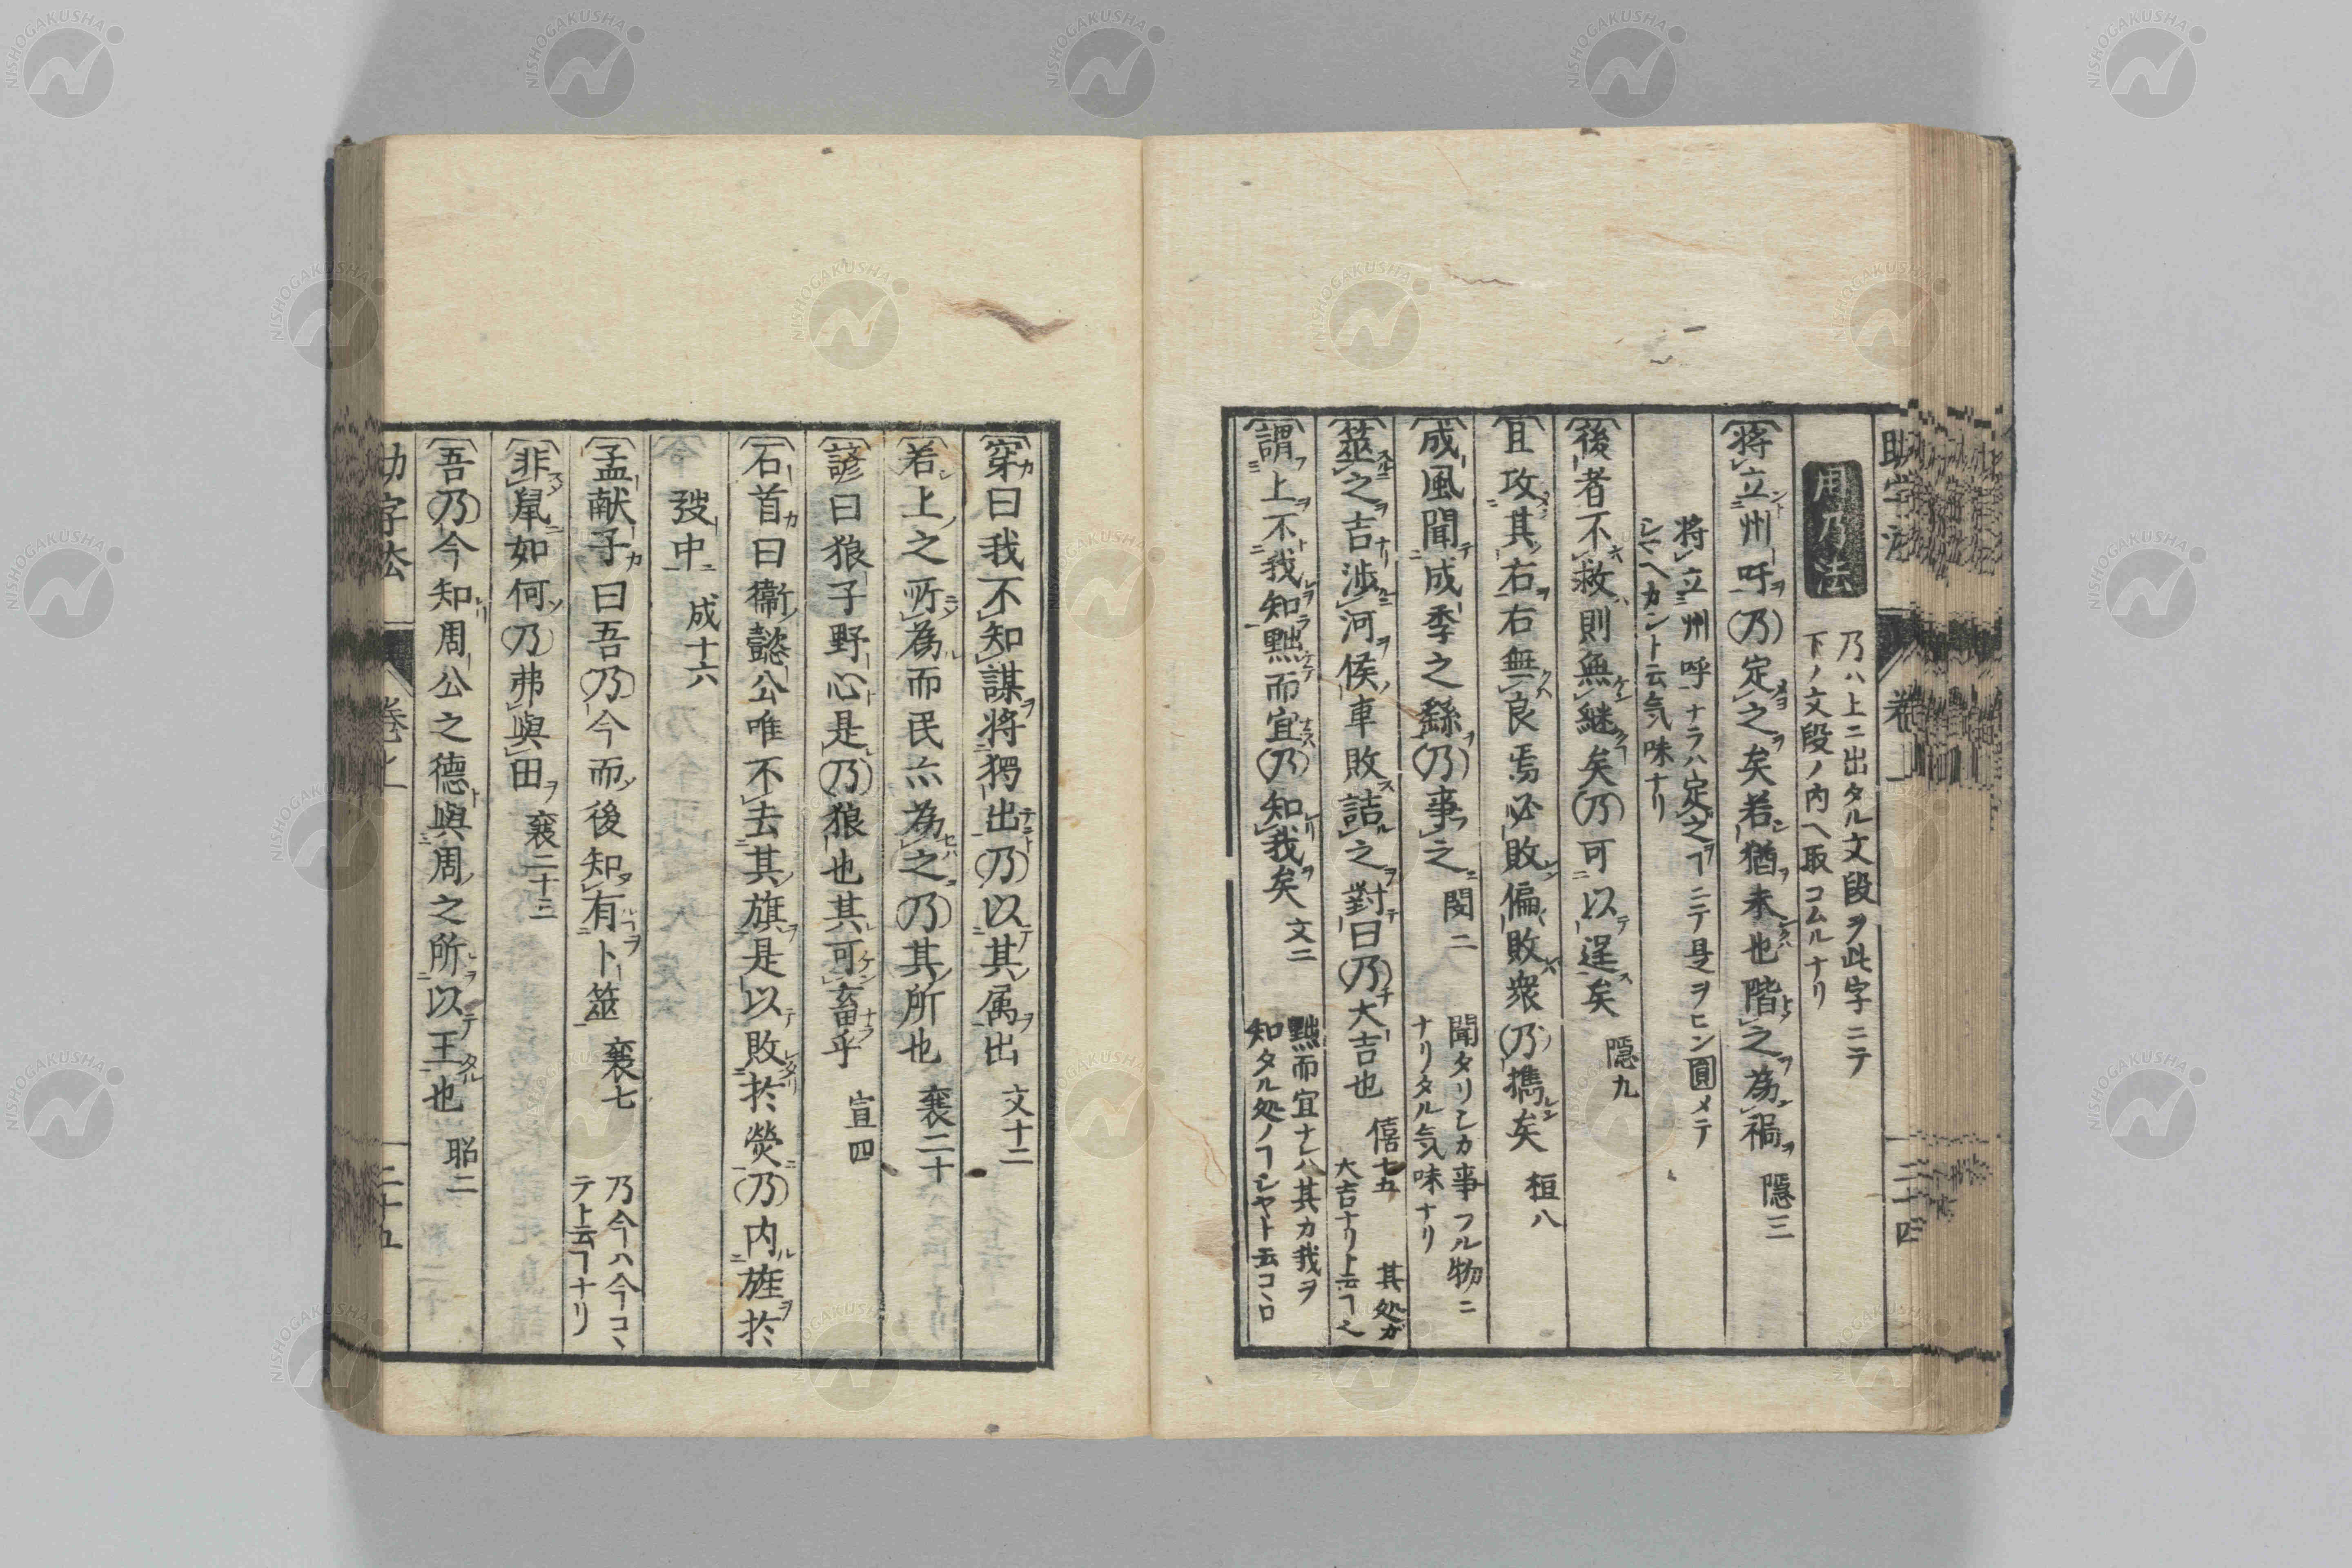 助字法 卷上 二十四
用乃法
乃ハ上ニ出タル文段ヲ此字ニテ
下ノ文段ノ内ヘ取コムルナリ
將立州吁乃定之矣若猶未也階之為禍 隱三
将立州呼ナラハ定之ヿニテ是ヲヒン圓メテ
シマヘカシト云気味ナリ
後者不救則無継矣乃可以逞矣 隱九
且攻其右右無良焉必敗偏敗衆乃攜矣 桓八
成風聞成季之繇乃事之 閔二
聞タリシカ事フル物ニ
ナリタル気味ナリ
筮之吉涉河侯車敗詰之對曰乃大吉也 僖十五
其処ガ
大吉ナリト云ヿ之
謂上不我知黜而宜乃知我矣 文二
黜而宜ナレハ其カ我ヲ
知タル処ノヿシヤト云コヽロ
穿曰我不知謀将獨出乃以其属出 文十二
若上之所為而民亦為之乃其所也 襄二十
諺曰狼子野心是乃狼也其可畜乎 宣四
石首曰衞懿公唯不去其旗是以敗於熒乃内旌於
弢中 成十六
孟献子曰吾乃今而後知有卜筮 襄七
乃今ハ今コヽ
テト云ヿナリ
非鼠如何乃弗與田 襄二十三
吾乃今知周公之德與周之所以王也 昭二
助字法 卷上 二十五
NISHOGAKUSHA